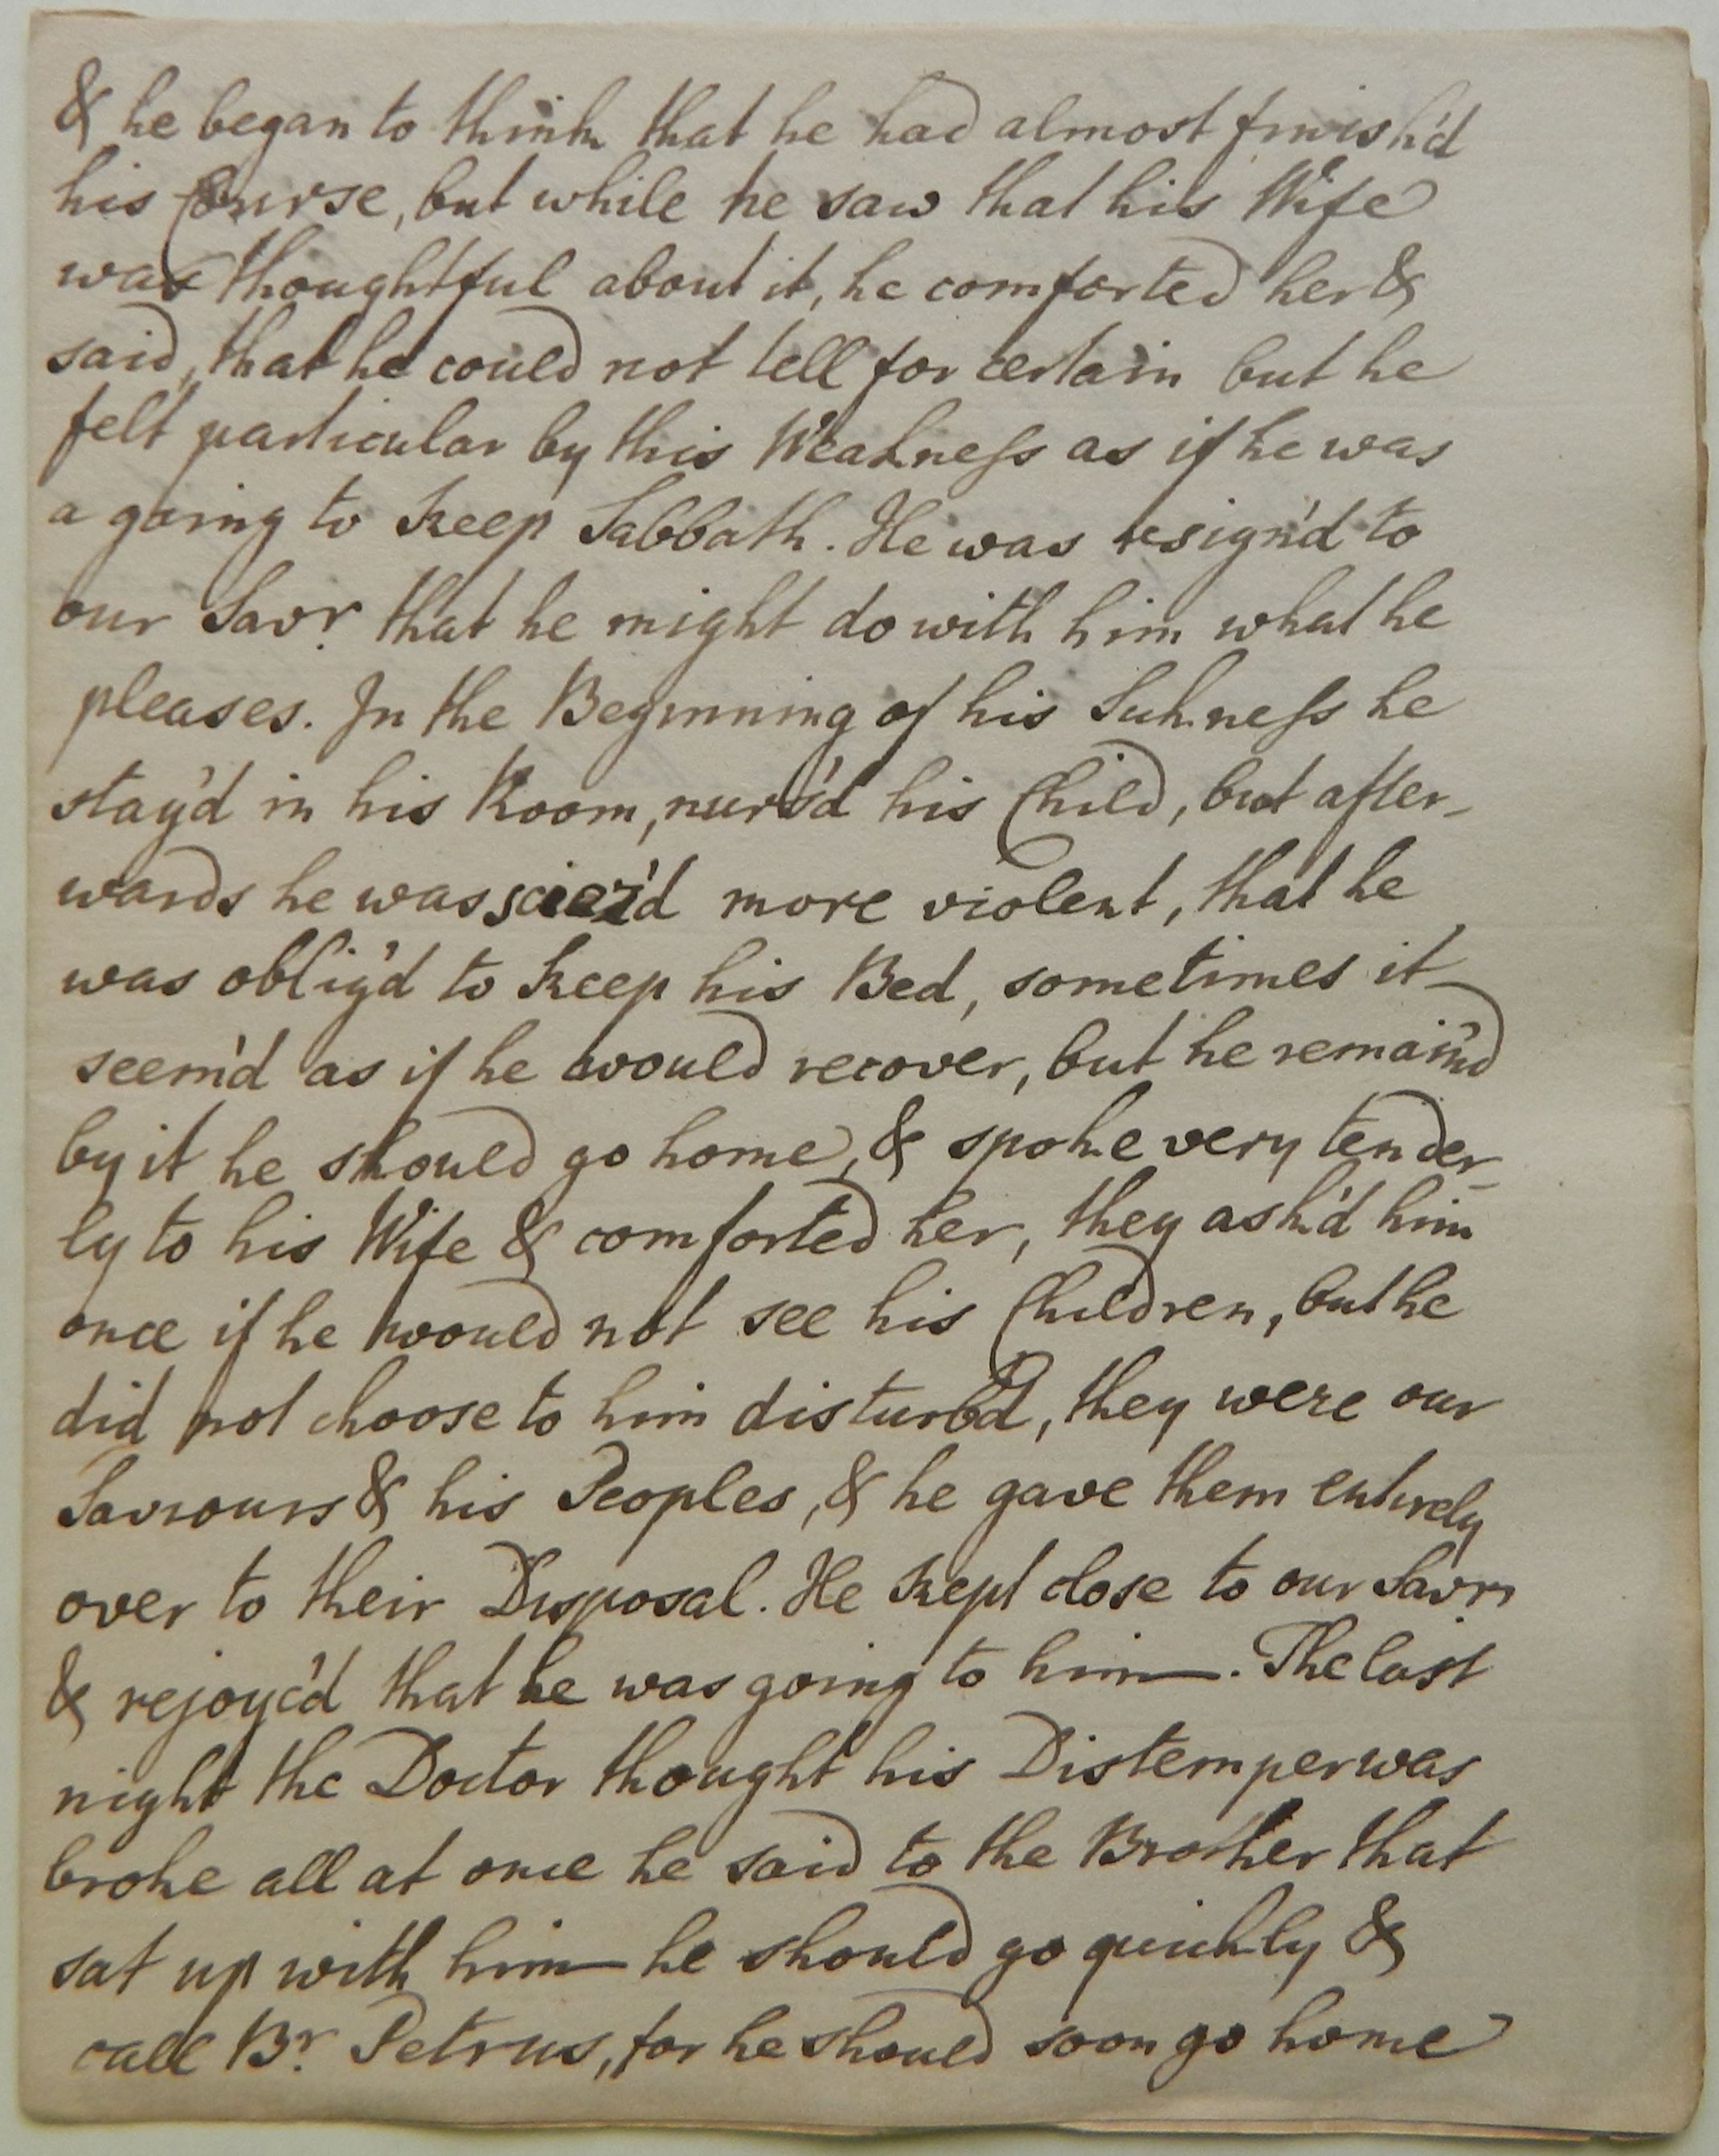 & he began to think that he had almost finish'd
his Course, but while he saw that his Wife
was thoughtful about it, he comforted her &
said, that he could not tell for certain but he
felt particular by this Weakness as if he was
a going to keep Sabbath. He was resign'd to
our Savr. that he might do with him what he
pleases. In the Beginning of his Sickness he
stay'd in his Room, nurs'd his Child, but after-
wards he was sciez'd more violent, that he
was oblig'd to keep his Bed, sometimes it
seem'd as if he would recover, but he remain'd
by it he should go home, & spoke very tender-
ly to his Wife & comforted her, they ask'd him
once if he would not see his Children, but he
did not choose to him disturb'd, they were our
Saviours & his Peoples, & he gave them entirely
over to their Disposal. He kept close to our Savr.
& rejoyc'd that he was going to him. The last
night the Doctor thought his Distemper was
broke all at once he said to the Brother that
sat up with him he should go quickly &
call Br. Petrus, for he should soon go home